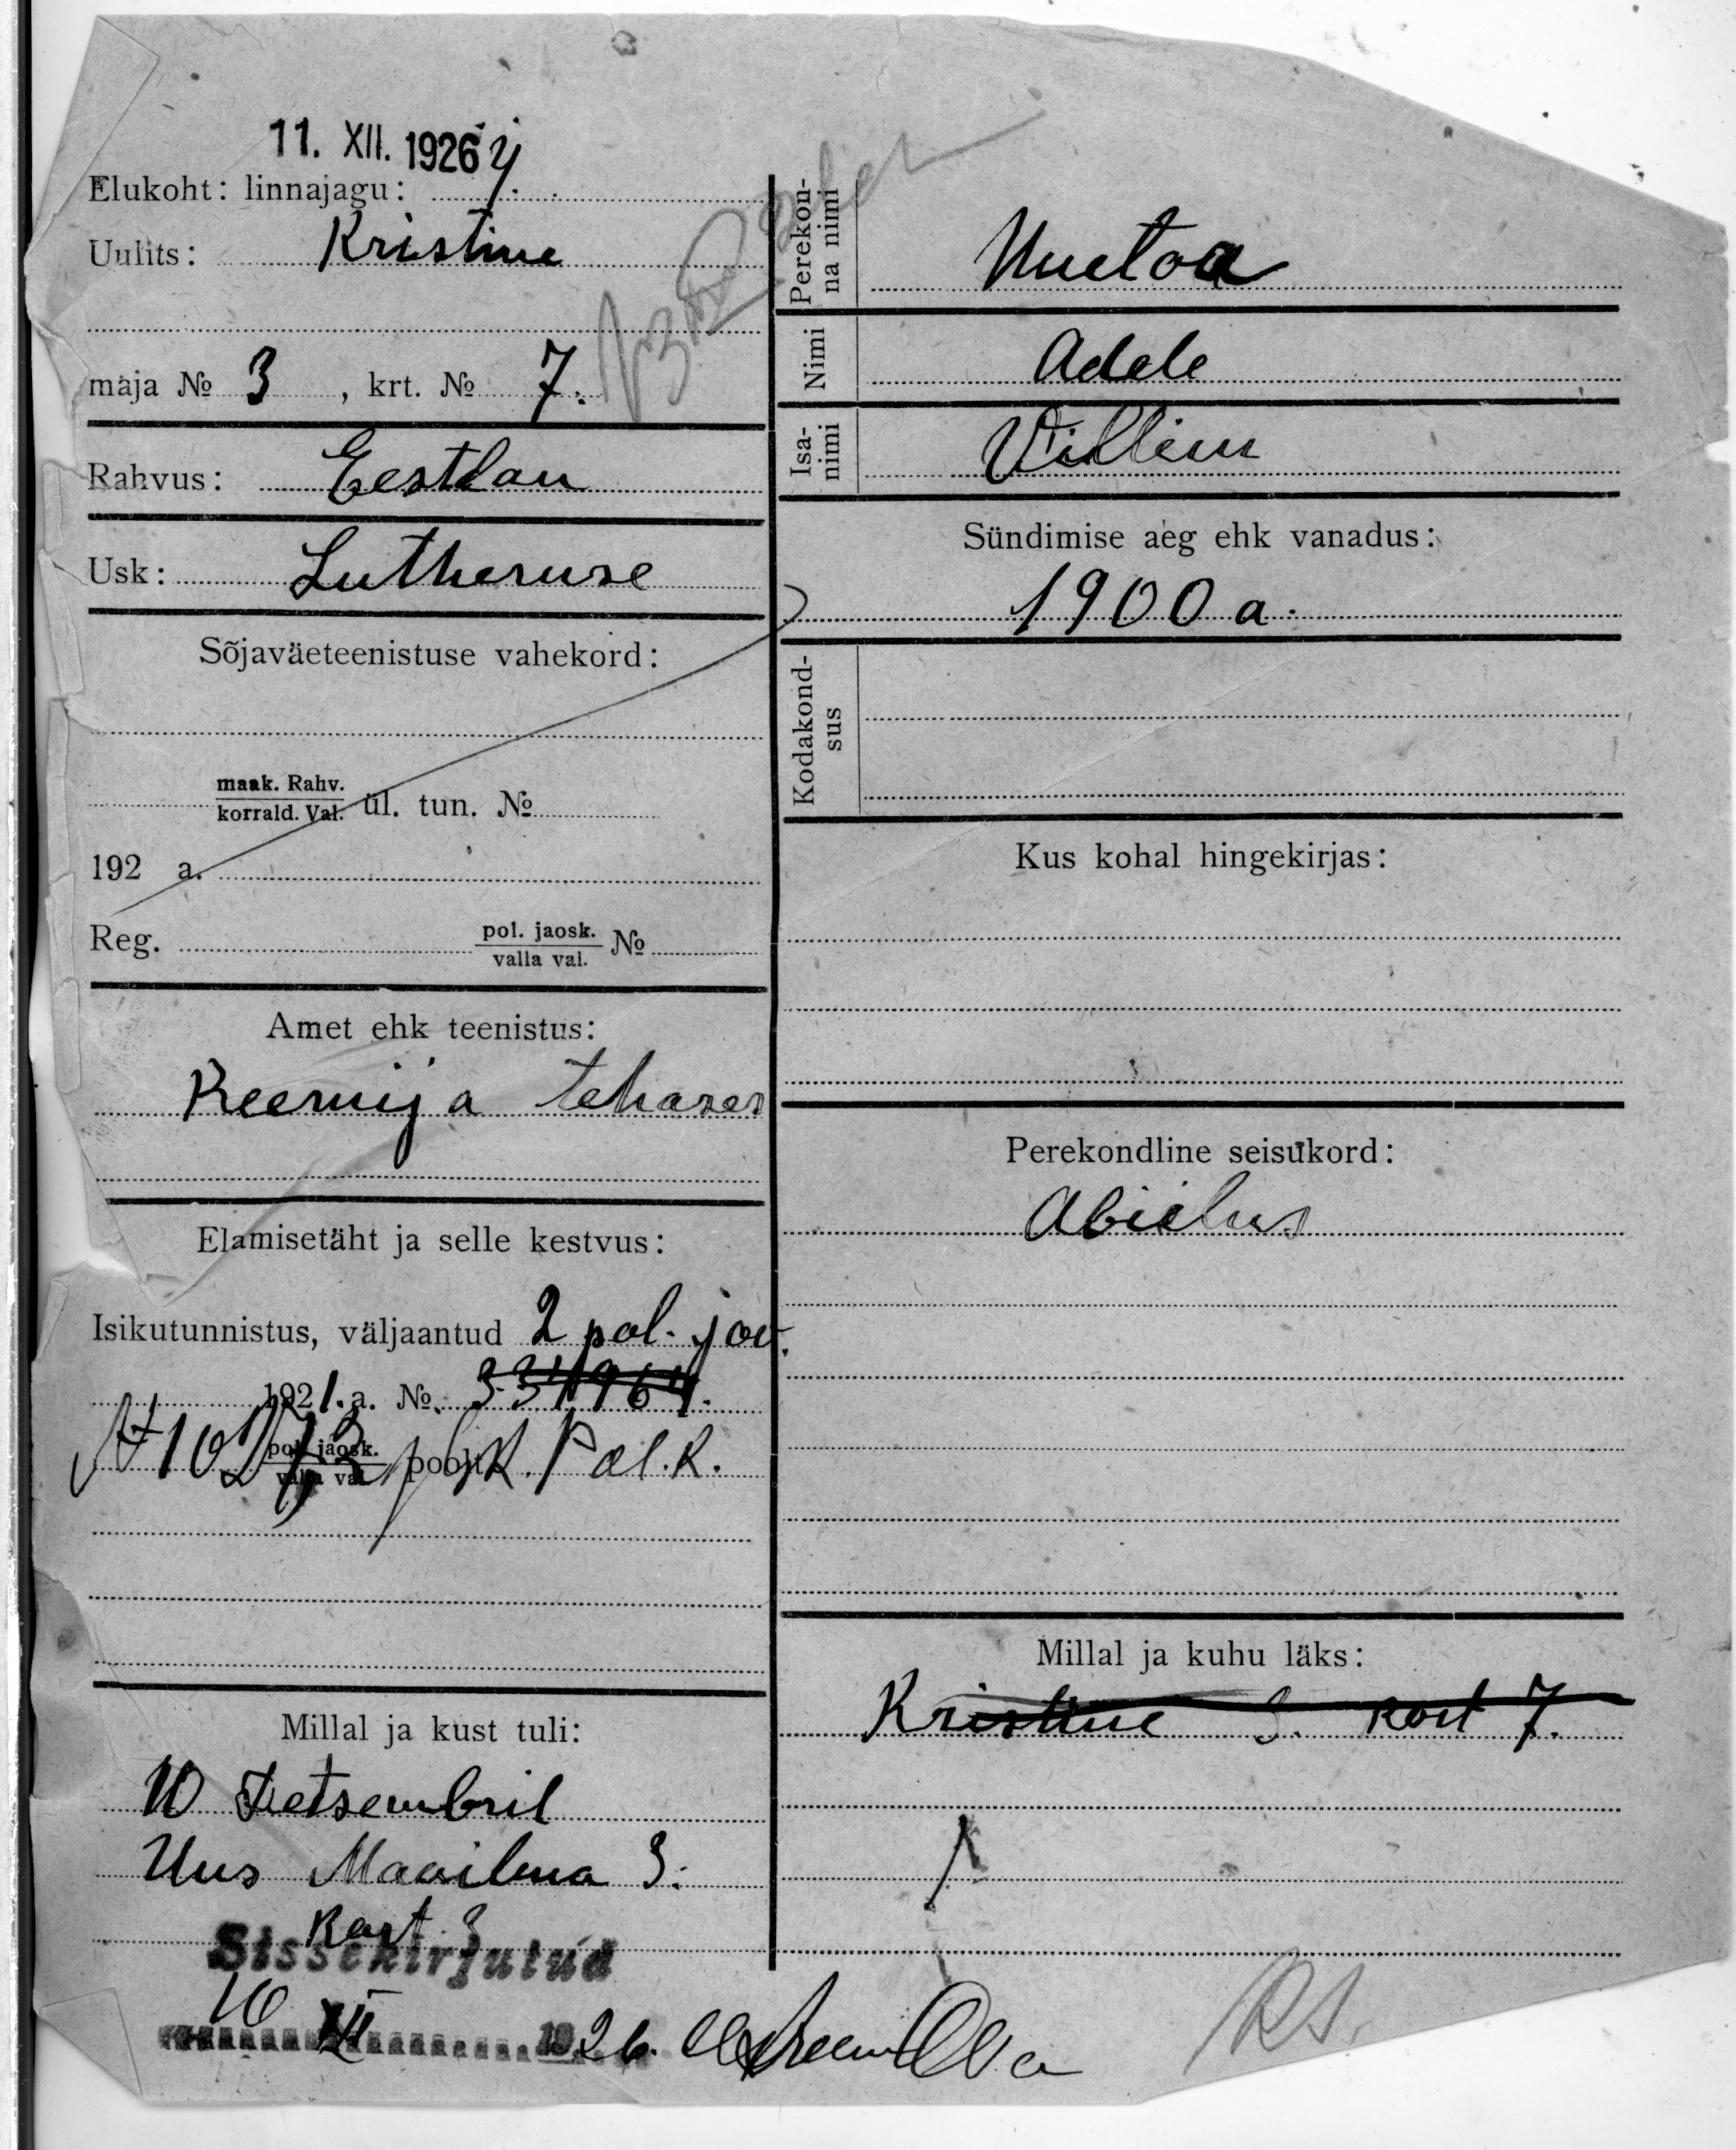 11. XII. 1926
Elukoht: linnajagu:
Uulits: Kristine
maja № 3, krt. № 7.
Rahvus: Eestlan
Usk: Lutheruse
Sõjaväeteenistuse vahekord:
maak. Rahv.
korrald. Val. ül. tun. №
192 a.
Reg. pol. jaosk. №
valla val.
Amet ehk teenistus:
Keemija tehases
Elamisetäht ja selle kestvus:
Isikutunnistus, väljaantud 2 pol. jao.
1921. a. № 334964.
pol. jaosk.
valla val. poolt K. Pol. K.
Millal ja kust tuli:
10 Detsembril
Uus Maailma 3.
Kort 3
Sissekirjutud
10 XII 1926.
Perekonna nimi Uuetoa
Nimi Adele
Isanimi Villem
Sündimise aeg ehk vanadus:
1900 a.
Kodakondsus
Kus kohal hingekirjas:
Perekondline seisukord:
Abielus
Millal ja kuhu läks:
Kristine 3. Kort 7.